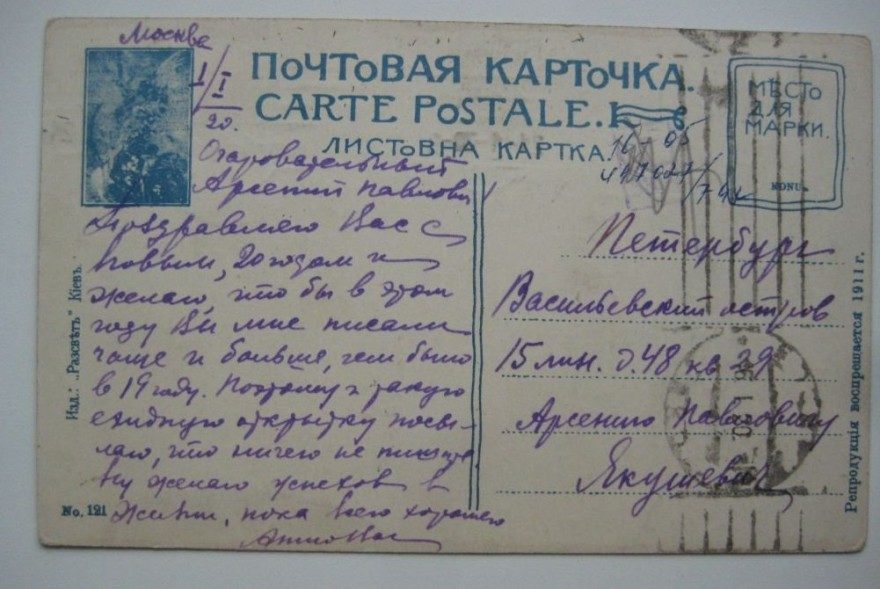 Москва
1/I
20.
ПОЧТОВАЯ КАРТОЧКА.
CARTE POSTALE.
ЛИСТОВНА КАРТКА.
МЕСТО
ДЛЯ
МАРКИ.
Очаровательный
Арсений Павлович
Поздравляю Вас с
новым, 20 годом и
желаю, что бы в этом
году Вы мне писали
чаще и больше, чем было
в 19 году. Поэтому и такую
ехидную открытку посы-
лаю, что ничего не пишете
Ну желаю успехов в
жизни, пока всего хорошего
Петербург
Васильевский остров
15 лин. д. 48 кв 29
Арсению Павловичу
Якушевич
Изд.: „Разсвѣтъ" Кіевъ.
No. 121
Репродукція воспрещается 1911 г.